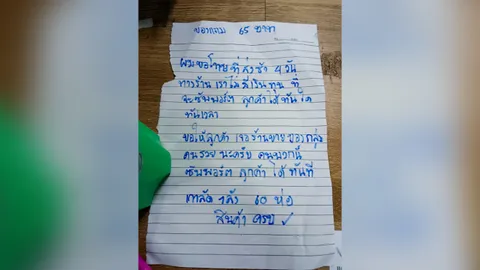 ของแถม 65 บาท
ผมขอโทษที่ส่งช้า 4 วัน
ทางร้าน เราไม่มีเงินทุน ที่
จะซัพพอร์ต ลูกค้าได้ทันใด
ทันเวลา
ขอให้ลูกค้า เจอร้านขายของกลุ่ม
คนรวย นะครับ คนพวกนี้
ซัพพอร์ต ลูกค้า ได้ ทันที
60 ห่อ
สินค้า ครบ ✓